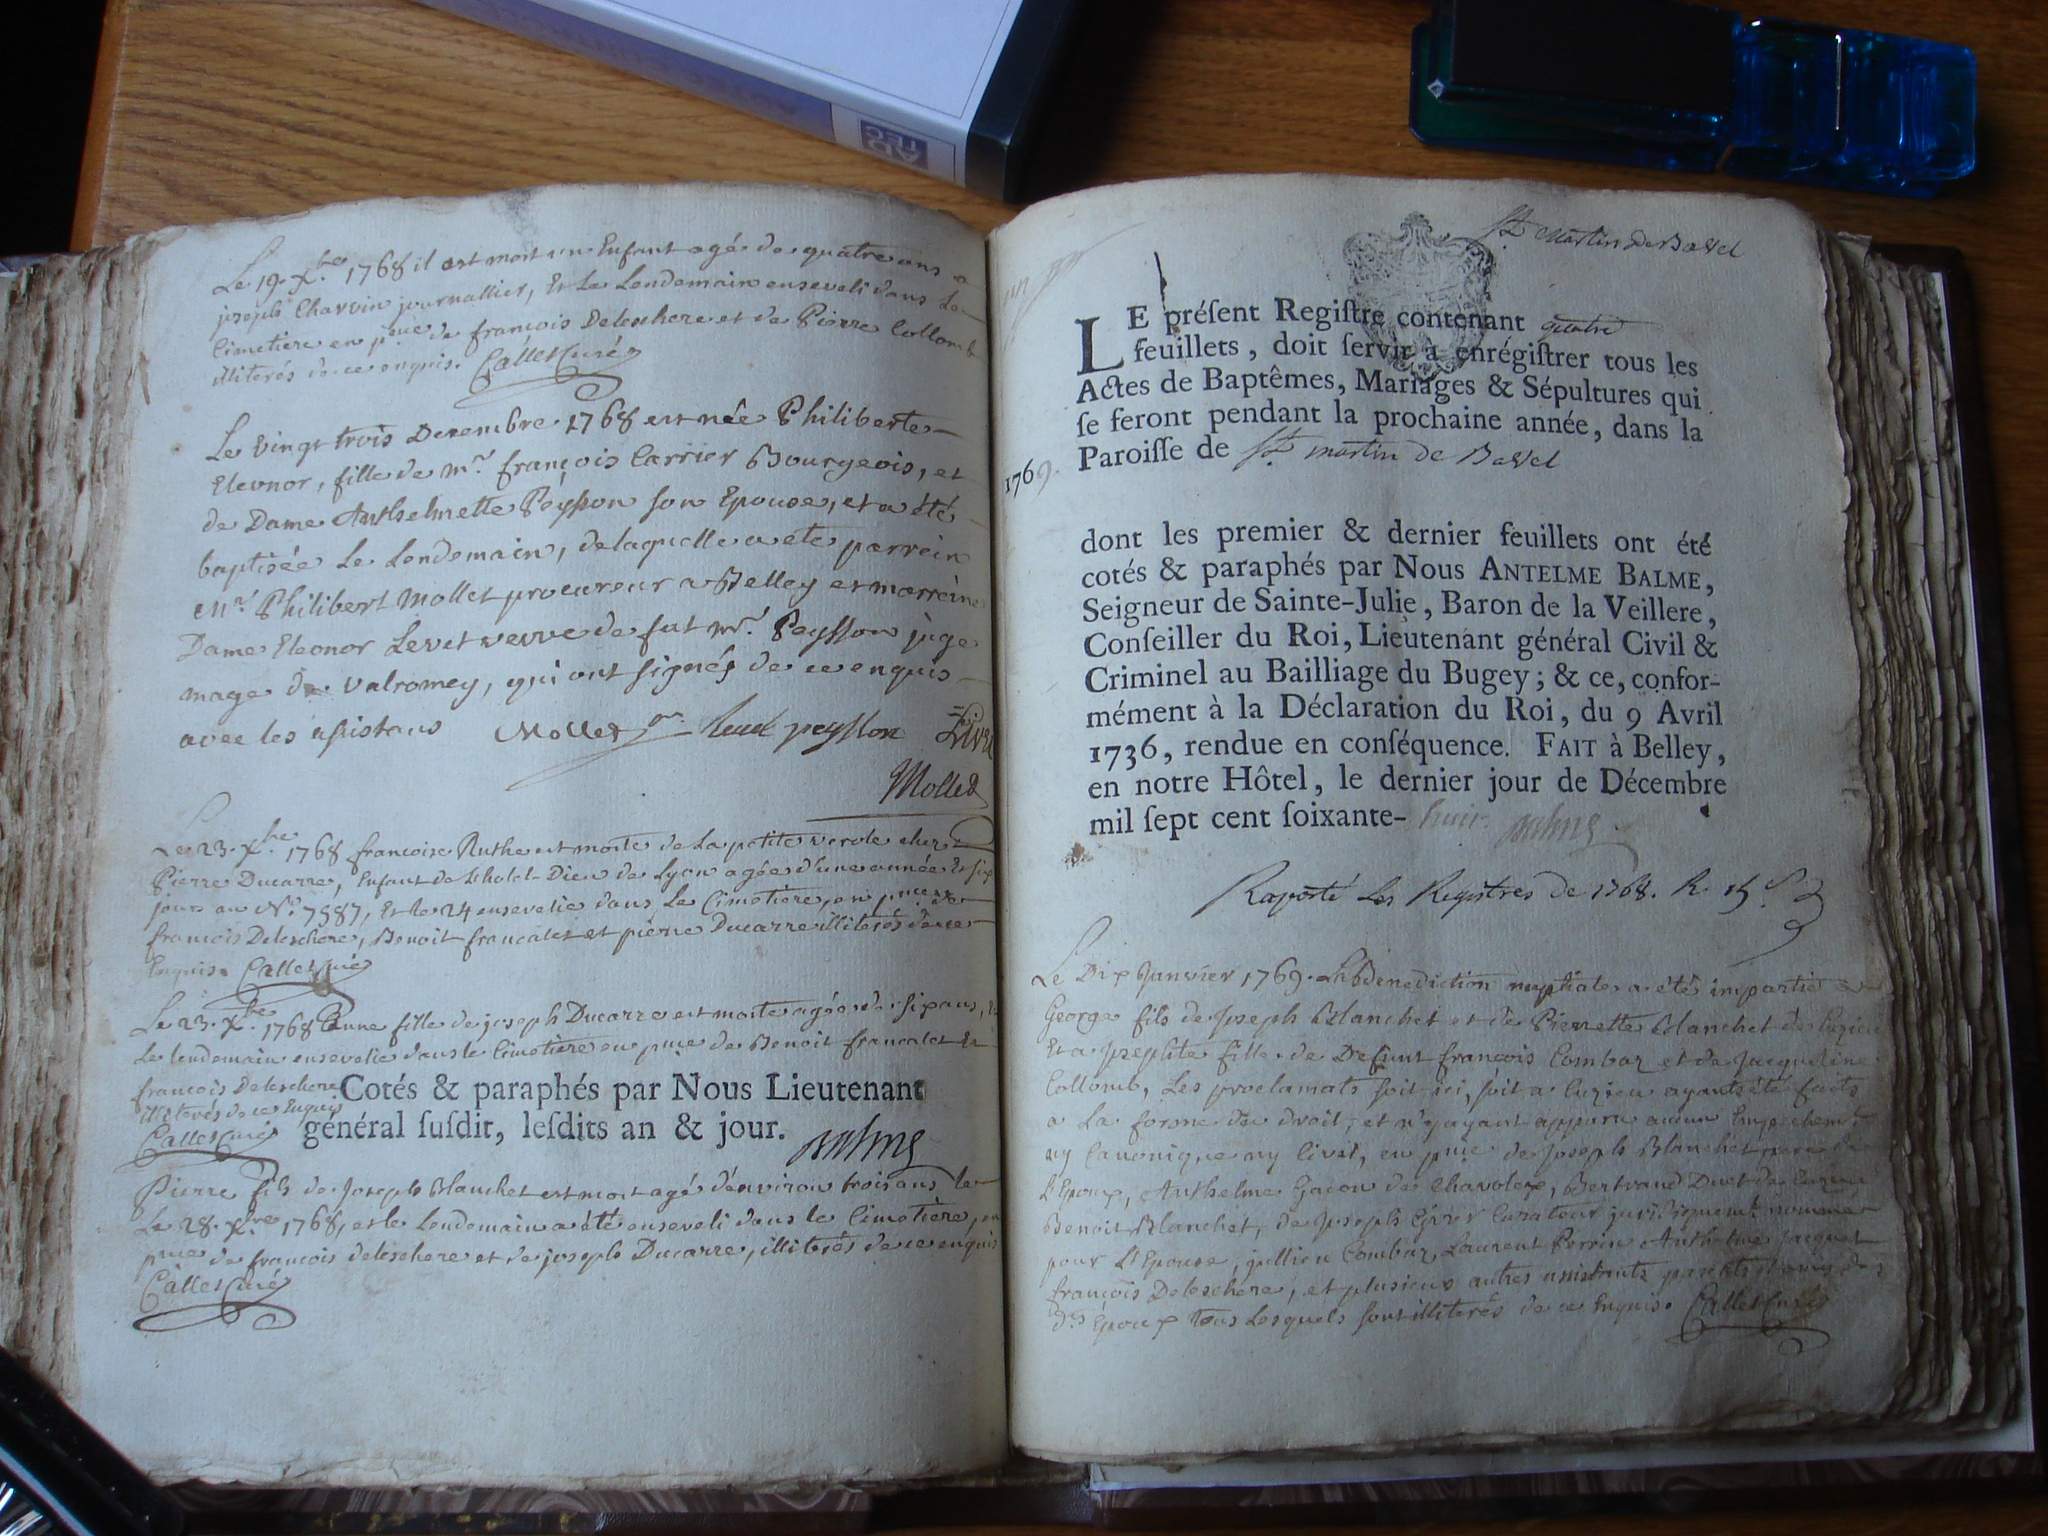 Le 19. Xbre 1768 il est mort un Enfant agé de quatre ans a
joseph Charvin journallier, Et Le Lendemain enseveli dans Le
Cimetiere en pnce de françois Deleschere et de Pierre Collomb
illiterés de ce enquis. Callet Curé
Le vingt trois Decembre 1768 est née Philiberte
Eleonor, fille de mr. françois Carrier Bourgeois, et
de Dame Anthelmette Peysson son Epouse, et a été
baptisée Le Lendemain, de laquelle a eté parrein
mr. Philibert Mollet procureur a Belley et marreine
Dame Eleonor Levet veuve de fut mr. Peysson juge
mage de valromey, qui ont signés de ce enquis
avec les assistans Mollet peysson
Mollet
Le 23. Xbre 1768 francoise Ruthe est morte de La petite verole chez
Pierre Ducarre, Enfant de Lhotel-Dieu de Lyon agée d'une année et six
jours au No. 7587, Et le 24 ensevelie dans Le Cimetiere, en pnce de
françois Deleschere, Benoit francalet et pierre Ducarre illiterés de ce
Enquis. Callet Curé
Le 23. Xbre 1768 Anne fille de joseph Ducarre est morte agée de six ans, Et
Le lendemain ensevelie dans le Cimetiere en pnce de Benoit francalet Et
françois Deleschere
illiterés de ce Enquis
Callet Curé
Cotés & paraphés par Nous Lieutenant
général ſuſdit, leſdits an & jour. Balme
Pierre fils de Joseph Blanchet est mort agé d'environ trois ans le
Le 28. Xbre 1768, et le Lendemain a été enseveli dans le Cimetière, en
pnce de francois deleschere et de joseph Ducarre, illiterés de ce enquis
Callet Curé
St. Martin de Bavel
LE préſent Regiſtre contenant quatre
feuillets, doit ſervir à enrégiſtrer tous les
Actes de Baptêmes, Mariages & Sépultures qui
ſe feront pendant la prochaine année, dans la
Paroiſſe de St. martin de Bavel
1769.
dont les premier & dernier feuillets ont été
cotés & paraphés par Nous ANTELME BALME,
Seigneur de Sainte-Julie, Baron de la Veillere,
Conſeiller du Roi, Lieutenant général Civil &
Criminel au Bailliage du Bugey; & ce, confor-
mément à la Déclaration du Roi, du 9 Avril
1736, rendue en conſéquence. FAIT à Belley,
en notre Hôtel, le dernier jour de Décembre
mil ſept cent ſoixante- huit. Balme
Raporté Les Registres de 1768. R. 15 s
Le Dix Janvier 1769. La Benediction nuptiale a été impartie a
George fils de Joseph Blanchet et de Pierrette Blanchet de Luzieu
Et a Josephte fille de Defunt françois Combaz et de Jacqueline
Collomb, Les proclamats soit ici, soit a Luzieu ayants été faits
a La forme de droit, et n'y ayant apparu aucun Empechemt.
ny Canonique ny Civil, en pnce de Joseph Blanchet pere de
L'Epoux, Anthelme Gacon de Chavolex, Bertrand Duet de Luzieu
Benoit Blanchet, de Joseph Curateur juridiquemt. nommé
pour L'Epouse, jullien Combaz, Laurent Perrin Anthelme Jacquet
françois Deleschere, et plusieurs autres assistants parents et amis des
ds. Epoux Tous Lesquels sont illiterés de ce Enquis. Callet Curé